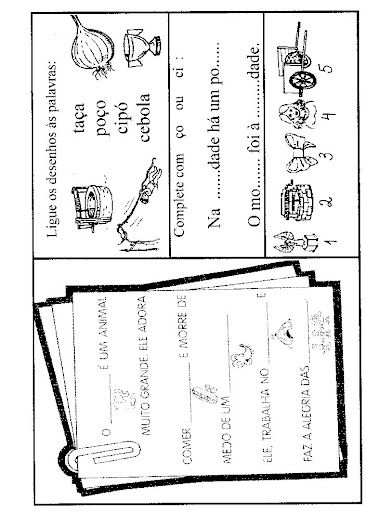 O ________ É UM ANIMAL
MUITO GRANDE. ELE ADORA
COMER ________ E MORRE DE
MEDO DE UM ________
ELE, TRABALHA NO ________ E
FAZ A ALEGRIA DAS ________
Ligue os desenhos às palavras:
taça
poço
cipó
cebola
Complete com ço ou ci :
Na ........dade há um po......
O mo....... foi à .........dade.
1 2 3 4 5